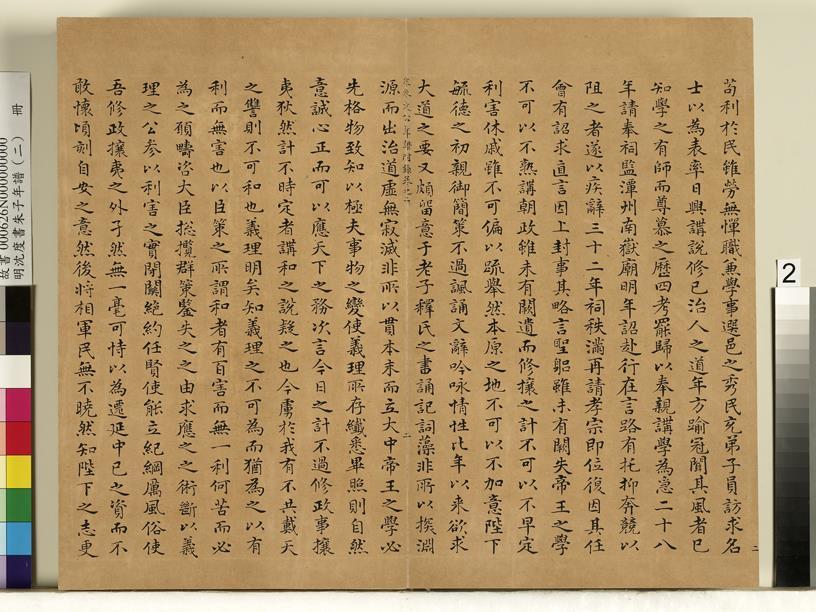 苟利於民雖勞無憚職兼學事選邑之秀民充弟子員訪求名
士以為表率日與講說修己治人之道年方踰冠聞其風者已
知學之有師而尊慕之歷四考罷歸以奉親講學為急二十八
年請奉祠監潭州南嶽廟明年詔赴行在言路有托抑奔競以
阻之者遂以疾辭三十二年祠秩滿再請孝宗即位復因其任
會有詔求直言因上封事其略言聖躬雖未有闕失帝王之學
不可以不熟講朝政雖未有闕遺而修攘之計不可以不早定
利害休戚雖不可徧以疏舉然本原之地不可以不加意陛下
毓德之初親御簡策不過諷誦文辭吟咏情性比年以來欲求
大道之要又頗留意于老子釋氏之書誦記詞藻非所以探淵
源而出治道虛無寂滅非所以貫本末而立大中帝王之學必
先格物致知以極夫事物之變使義理所存纖悉畢照則自然
意誠心正而可以應天下之務次言今日之計不過修政事攘
夷狄然計不時定者講和之說疑之也今虜於我有不共戴天
之讐則不可和也義理明矣知義理之不可為而猶為之以有
利而無害也以臣策之所謂和者有百害而無一利何苦而必
為之願疇咨大臣總攬群策鑒失之之由求應之之術斷以義
理之公參以利害之實閉關絶約任賢使能立紀綱厲風俗使
吾修政攘夷之外孑然無一毫可恃以為遷延中已之資而不
敢懷頃刻自安之意然後將相軍民無不曉然知陛下之志更
二
2
故書 000626N000000000
明沈度書朱子年譜（二） 冊